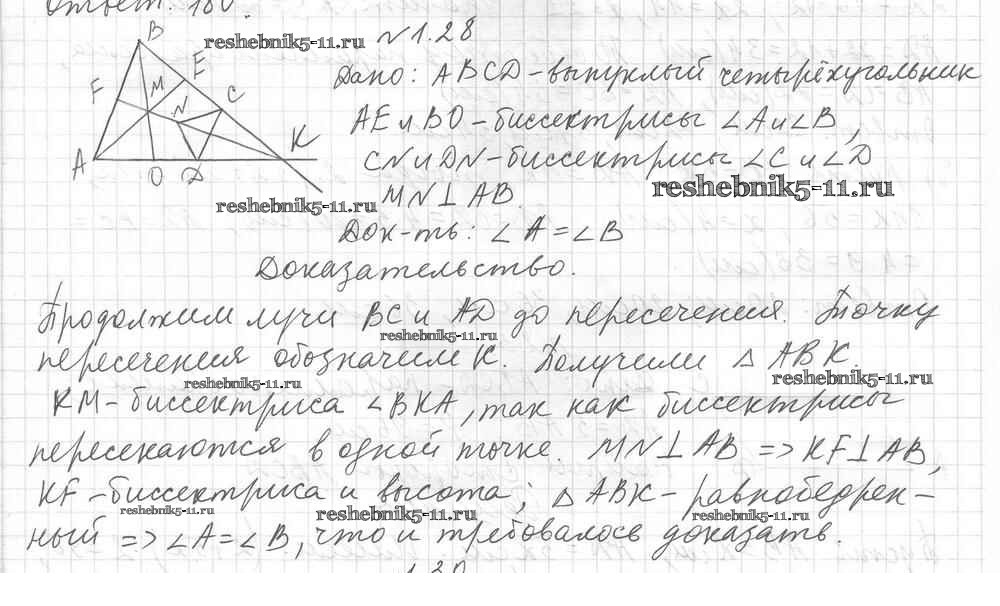 Ответ: 180°.
B
reshebnik5-11.ru
N1.28
E
Дано: ABCD - выпуклый четырёхугольник
F
M
N
C
AE и BO - биссектрисы ∠A и ∠B,
K
A
O
D
CN и DN - биссектрисы ∠C и ∠D
reshebnik5-11.ru
reshebnik5-11.ru
MN⊥AB.
Док-ть: ∠A=∠B
Доказательство.
Продолжим лучи BC и AD до пересечения. Точку
reshebnik5-11.ru
пересечения обозначим K. Получили △ ABK.
reshebnik5-11.ru
reshebnik5-11.ru
KM - биссектриса ∠BKA, так как биссектрисы
пересекаются в одной точке. MN⊥AB => KF⊥AB,
KF - биссектриса и высота; △ ABK - равнобедрен-
reshebnik5-11.ru
reshebnik5-11.ru
reshebnik5-11.ru
ный => ∠A=∠B, что и требовалось доказать.